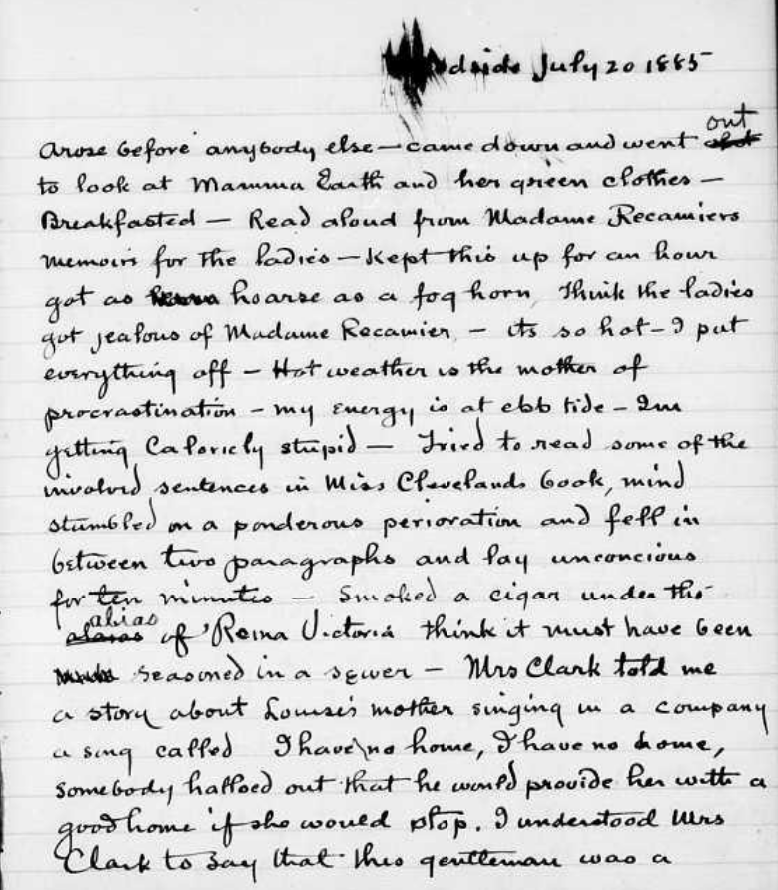 July 20 1885
out
Arose before anybody else — came down and went
to look at Mamma Earth and her green clothes —
Breakfasted — Read aloud from Madame Recamiers
memoirs for the ladies — Kept this up for an hour
got as hoarse as a fog horn, Think the ladies
got jealous of Madame Recamier — its so hot — I put
everything off — Hot weather is the mother of
procrastination — my energy is at ebb tide — Im
getting Caloricly stupid — Tried to read some of the
involved sentences in Miss Clevelands book, mind
stumbled on a ponderous perioration and fell in
between two paragraphs and lay unconcious
for ten minutes — Smoked a cigar under the
alias
of 'Reina Victoria think it must have been
seasoned in a sewer — Mrs Clark told me
a story about Louise's mother singing in a company
a song called I have no home, I have no home,
somebody halloed out that he would provide her with a
good home if she would stop. I understood Mrs
Clark to say that this gentleman was a